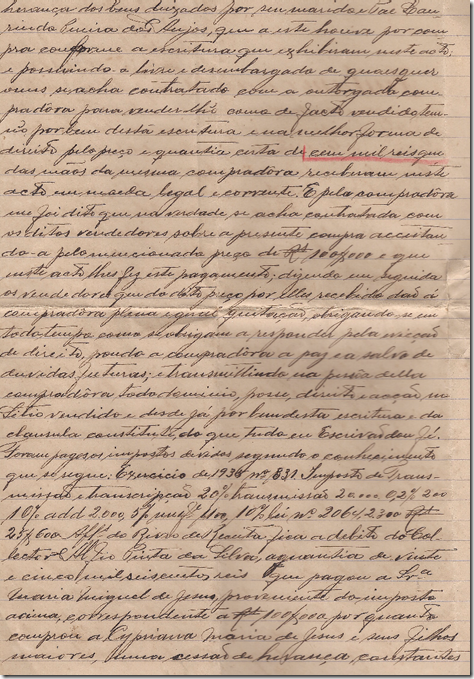 herança dos bens deixados por seu marido e Pae Lau-
rindo Pereira dos Anjos, que a este houve por com-
pra conforme a escritura que exhibiram neste acto;
e possuindo a livre e desembargada de quaesquer
onus, se acha contratado com a outorgada com-
pradora para vender-lhe como de facto vendido tem-
por bem desta escritura e na melhor forma de
direito pelo preço e quantia certa de cem mil reis que
das mãos da mesma compradora receberam neste
acto em moeda legal e corrente. E pela compradora
me foi dito que na verdade se acha contratada com
os ditos vendedores sobre a presente compra acceitan-
do-a pelo mencionado preço de Rs 100$000 e que
neste acto lhes fez este pagamento; dizendo em seguida
os vendedores que do dito preço por elles recebido dão á
compradora plena e geral quitação, obrigando-se em
todo tempo como se obrigam a responder pela evicção
de direito, pondo a compradora a paz e a salvo de
duvidas futuras; e transmittindo na pessoa della
compradora todo dominio, posse, direito e acção no
Sitio vendido e desde já por bem desta escritura e da
clausula constituti, do que tudo eu Escrivão dou fé.
Foram pagos os impostos devidos segundo o conhecimento
que se segue: Exercicio de 1936 nº 831. Imposto de Trans-
missão e transcripção 20% transmissão 20000 0,2% 200
10% add 2000, 5% 10% lei nº 2064, 2300
25$600 do livro de Receita fica a debito do Col-
lector Pinta da Silva, a quantia de vinte
e cinco mil seiscentos reis que pagou a Sr.a
Maria Miguel de Jesus, proveniente do imposto
acima, correspondente a Rs 100$000 por quanto
comprou a Cypriana Maria de Jesus e seus filhos
maiores, uma cessão de herança, constantes